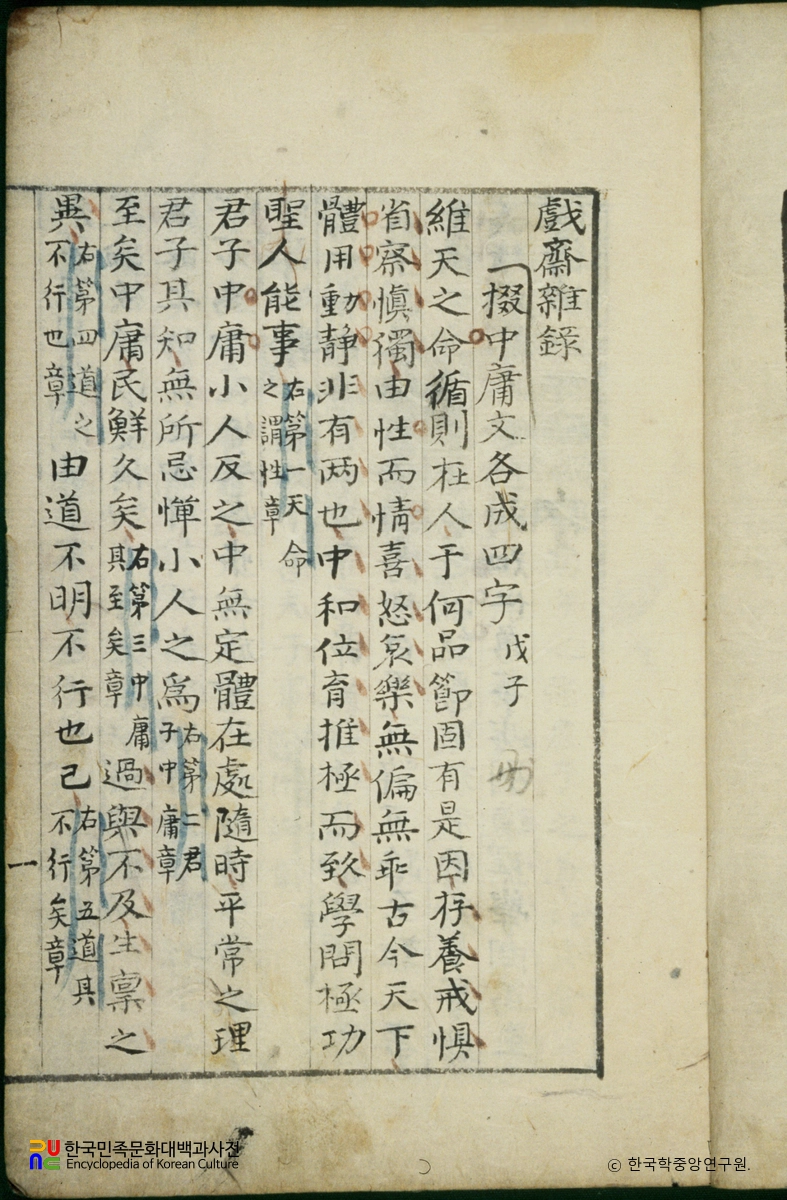 戲齋雜錄
掇中庸文各成四字 戊子
維天之命循則在人于何品節固有是因存養戒懼
省察愼獨由性而情喜怒哀樂無偏無乖古今天下
體用動靜非有两也中和位育推極而致學問極功
聖人能事 右第一天命之謂性章
君子中庸小人反之中無定體在處隨時平常之理
君子其知無所忌憚小人之爲 右第二君子中庸章
至矣中庸民鮮久矣 右第三中庸其至矣章 過與不及生禀之
異 右第四道之不行也章 由道不明不行也已 右第五道其不行矣章
一
한국민족문화대백과사전
Encyclopedia of Korean Culture
© 한국학중앙연구원.